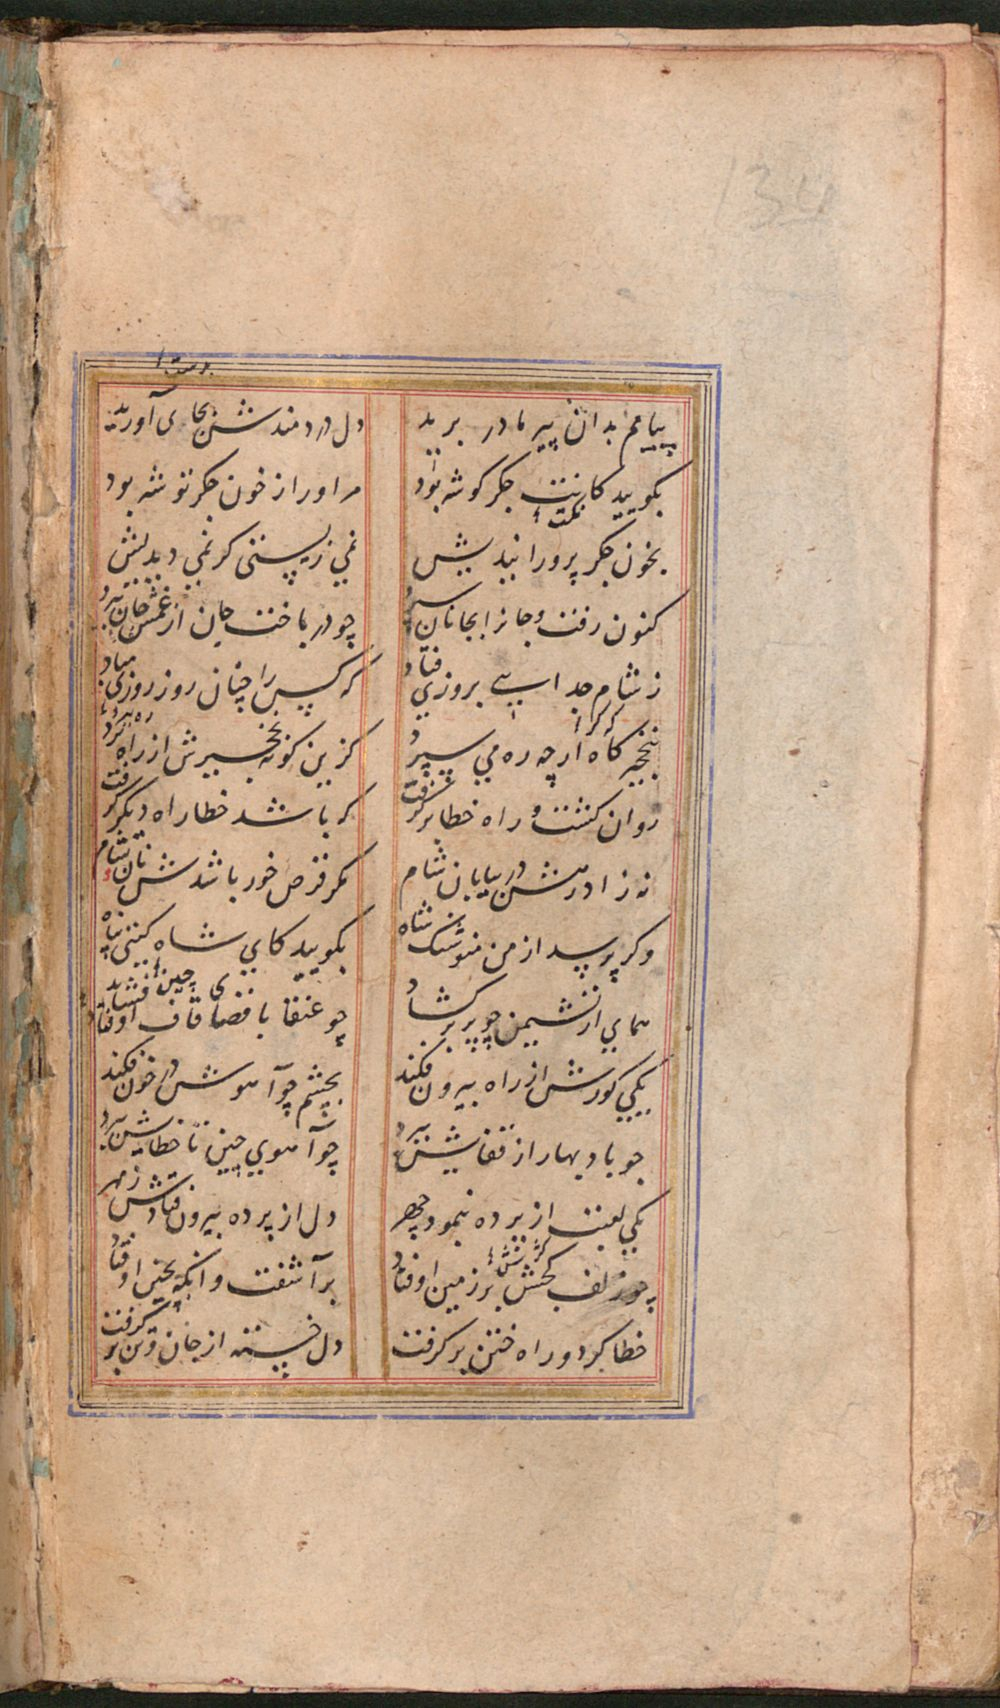 بدست
پیامم بدان پیر مادر برید دل دردمندش بجای آورید
بکویید کانت جکر کوشه بود مر اورا از خون جکر توشه بود
بخون جکر پرورانیدیش نمی زیستی کر نمی دیدیش
کنون رفت و جانرا بجانان سپرد چو در باخت جان از غمش جان نبرد
ز شام جدایی بروزی فتاد که کس را چنان روز روزی مباد
بنخجیر کاه ارچه ره می سپرد کزین کونه نخجیرش از راه برد
روان کشت و راه خطا بر کرفت که باشد خطا راه دیکر کرفت
نه زادر هش در بیابان شام مکر قرص خور باشدش نان شام
وکر پرسد از من منوشنک شاه بکویید کای شاه کیتی پناه
همای از نشیمن چو پر بر کشاد چو عنقا با قصای قاف اوفتاد
یکی کورش از راه بیرون فکند بچشم چو آهوش در خون فکند
چو باد بهار از قفایش ببرد چو آهوی چین تا خطایش ببرد
یکی لعبت از پرده بنمود چهر دل از پرده بیرون فتادش ز مهر
چو زلف کجش بر زمین اوفتاد برآشفت وانکه بچین اوفتاد
خطا کرد و راه ختن بر کرفت دل خسته از جان و تن بر کرفت